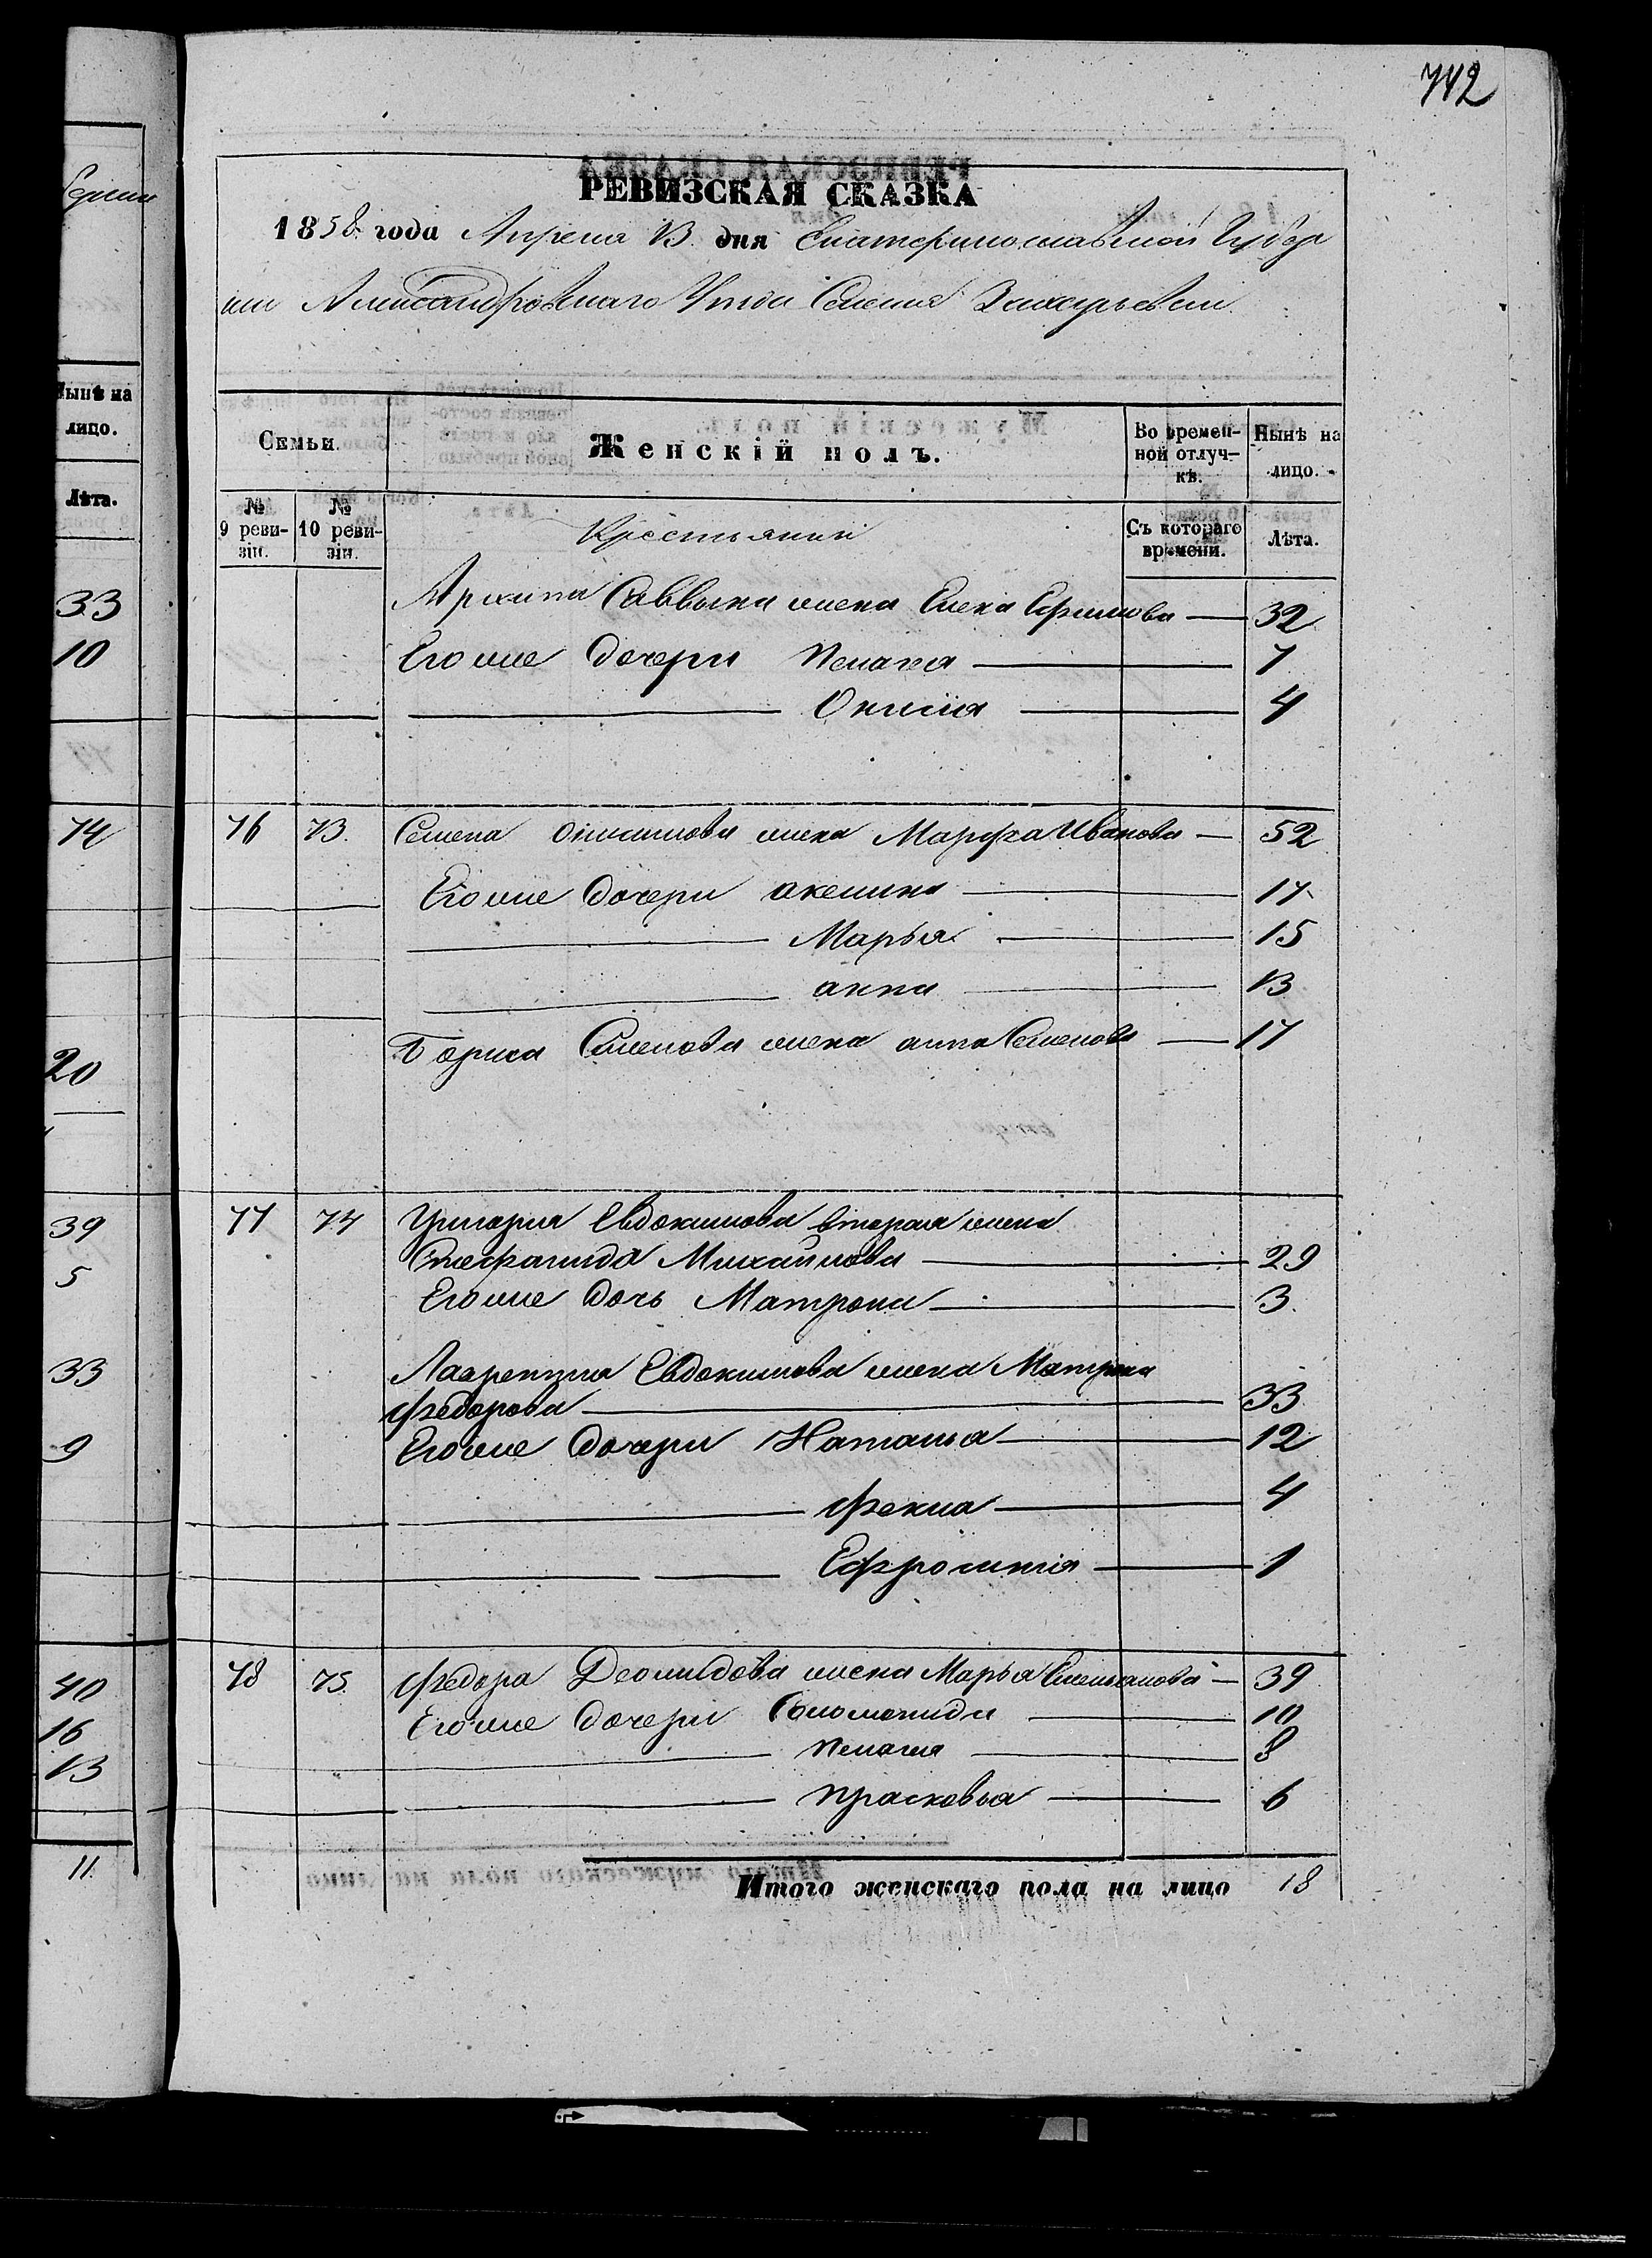 742
РЕВИЗСКАЯ СКАЗКА
1858 года Апреля 13 дня Екатеринославской Губер
нии Александровскаго Уезда Селения Захарьевки
Семьи.
Женскій полъ.
Во времен-
ной отлуч-
кѣ.
Нынѣ на
лицо.
№
9 реви-
зіи.
№
10 реви-
зіи.
Крестьянин
Съ котораго
времени.
Лѣта.
Архипа Саввына жена Елена Ефимова 32
Его же дочери Пелагея 7
Онисия 4
76 73 Семена Онисимова жена Марфа Иванова 52
Его же дочери акелина 17
Марья 15
анна 13
Бориса Семенова жена анна Семенова 17
77 74 Григория Евдокимова вторая жена
Стефанида Михайлова 29
Его же дочь Матрона 3
Лаврентия Евдокимова жена Матрона
Федорова 33
Его же дочери Наталья 12
Фекла 4
Ефросиния 1
78 75 Федора Деомидова жена Марья Емельянова 39
Его же дочери Соломонида 10
Пелагея 8
Прасковья 6
Итого женскаго пола на лицо 18
Нынѣ на
лицо.
Лѣта.
33
10
74
20
39
5
33
9
40
16
13
11